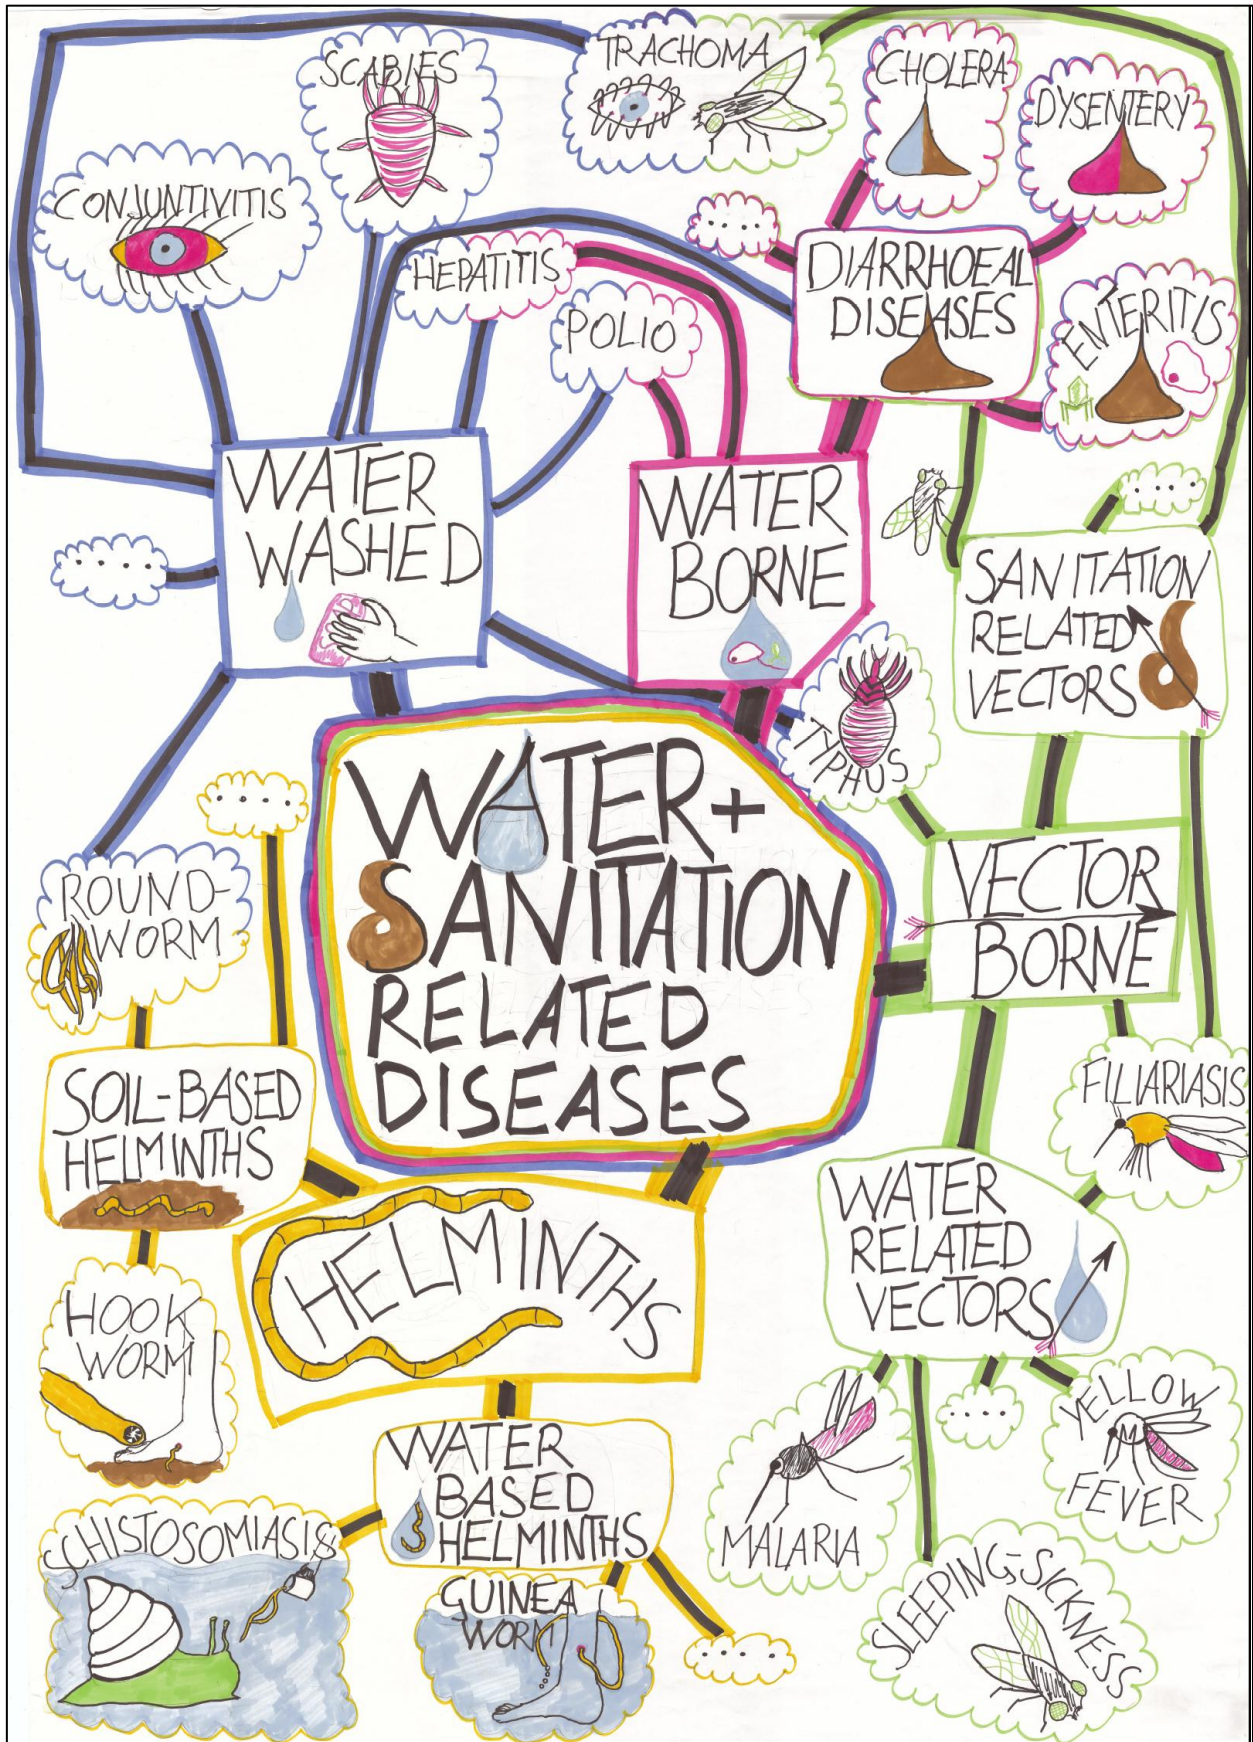 SCABIES
TRACHOMA
CHOLERA
DYSENTERY
CONJUNTIVITIS
HEPATITIS
POLIO
DIARRHOEAL
DISEASES
ENTERITIS
WATER
WASHED
WATER
BORNE
SANITATION
RELATED
VECTORS
TYPHUS
WATER+
SANITATION
RELATED
DISEASES
VECTOR
BORNE
ROUND-
WORM
SOIL-BASED
HELMINTHS
FILIARIASIS
HELMINTHS
WATER
RELATED
VECTORS
HOOK
WORM
WATER
BASED
HELMINTHS
MALARIA
YELLOW
FEVER
SCHISTOSOMIASIS
GUINEA
WORM
SLEEPING-SICKNESS